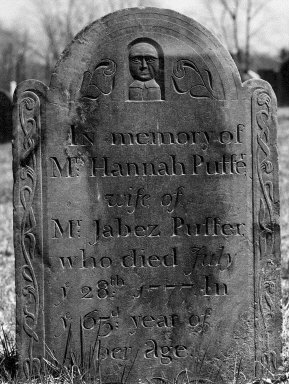 In memory of
Mrs Hannah Puffer
wife of
Mr Jabez Puffer
who died July
y 28th 1777 In
y 65d year of
her age